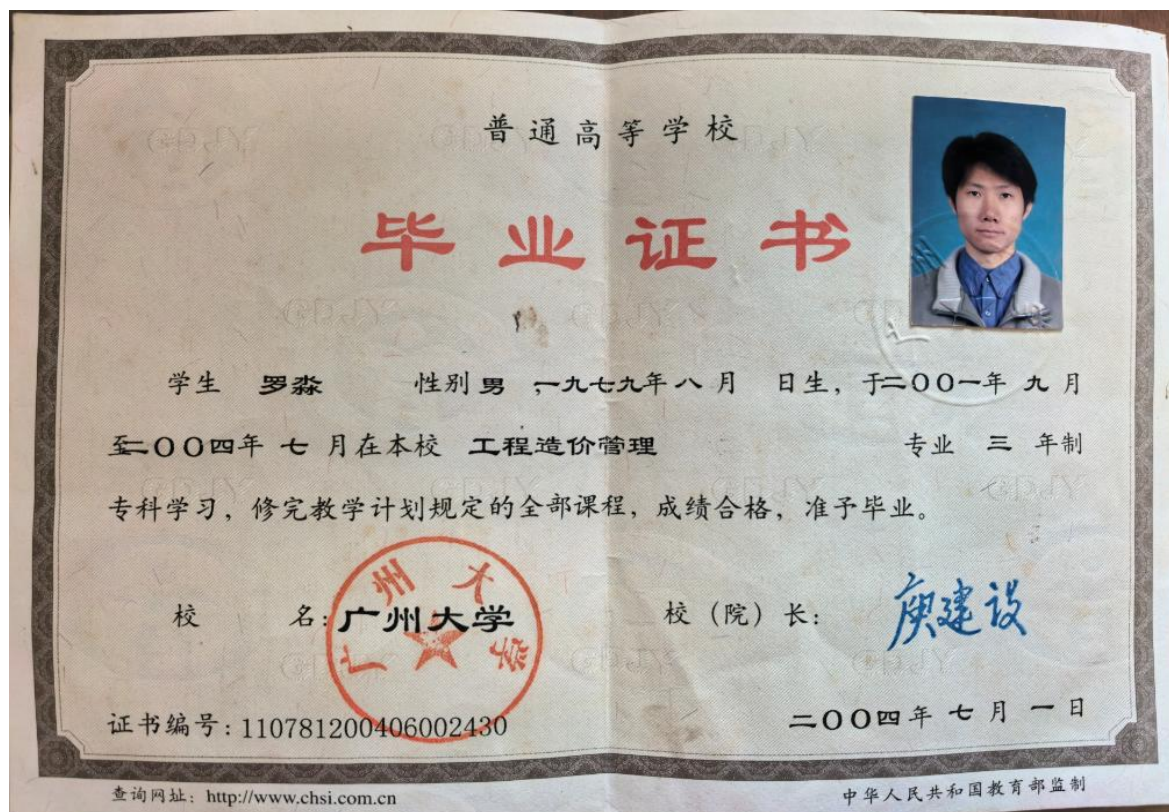 普通高等学校
毕业证书
学生 罗淼 性别 男 ,一九七九年 八 月 日生，于二〇〇一年 九 月
至二〇〇四年 七 月在本校 工程造价管理 专业 三 年制
专科学习，修完教学计划规定的全部课程，成绩合格，准予毕业。
校 名：广州大学 校（院）长：庾建设
广州大学
证书编号：110781200406002430 二〇〇四年 七 月 一 日
查询网址：http://www.chsi.com.cn 中华人民共和国教育部监制